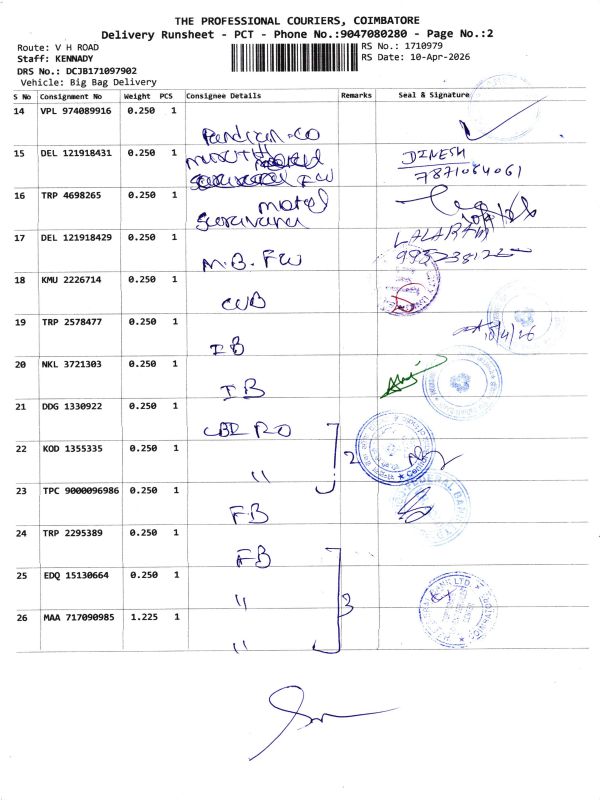 THE PROFESSIONAL COURIERS, COIMBATORE
Delivery Runsheet - PCT - Phone No.:9047080280 - Page No.:2
Route: V H ROAD
RS No.: 1710979
Staff: KENNADY
RS Date: 10-Apr-2026
DRS No.: DCJB171097902
Vehicle: Big Bag Delivery
S No Consignment No Weight PCS Consignee Details Remarks Seal & Signature
14 VPL 974089916 0.250 1
Pandian - CO
15 DEL 121918431 0.250 1 DINESH
FW 7871084061
16 TRP 4698265 0.250 1 metal
Saravana
17 DEL 121918429 0.250 1 LALARAM
M.B. FW
18 KMU 2226714 0.250 1
CUB
19 TRP 2578477 0.250 1 10/4/26
IB
20 NKL 3721303 0.250 1
IB
21 DDG 1330922 0.250 1
CBI RO
22 KOD 1355335 0.250 1 2
"
23 TPC 9000096986 0.250 1
FB
24 TRP 2295389 0.250 1
FB
25 EDQ 15130664 0.250 1
" 3
26 MAA 717090985 1.225 1
"